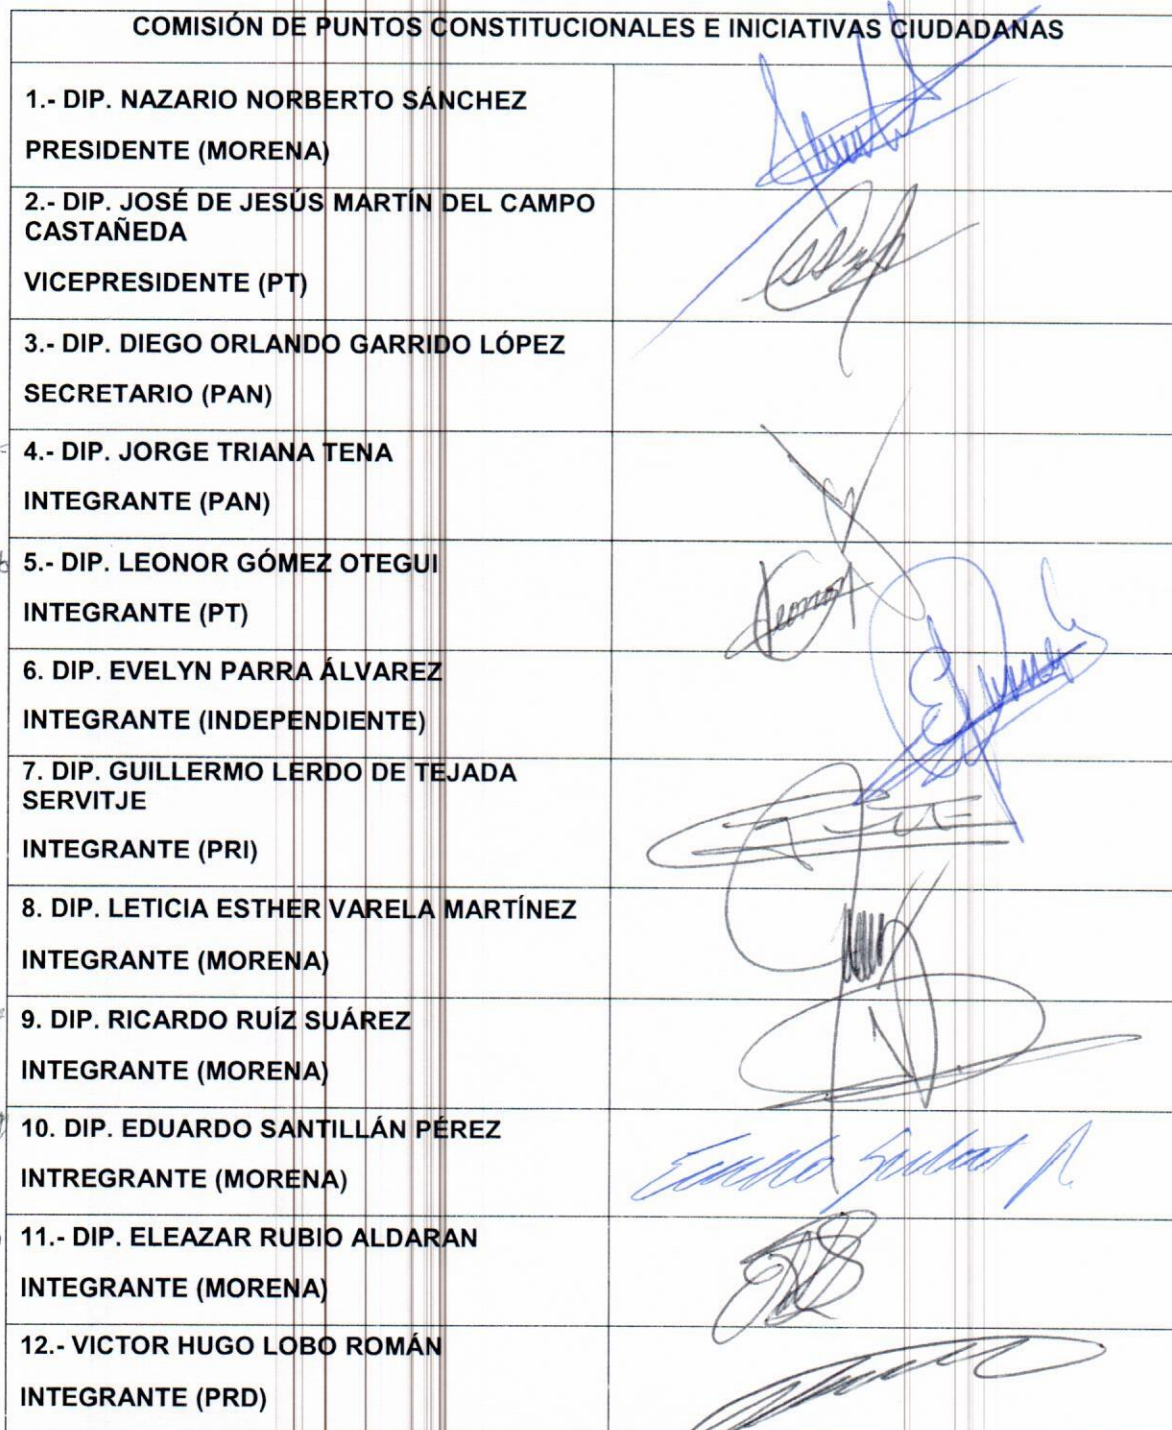 COMISIÓN DE PUNTOS CONSTITUCIONALES E INICIATIVAS CIUDADANAS
1.- DIP. NAZARIO NORBERTO SÁNCHEZ
PRESIDENTE (MORENA)
2.- DIP. JOSÉ DE JESÚS MARTÍN DEL CAMPO
CASTAÑEDA
VICEPRESIDENTE (PT)
3.- DIP. DIEGO ORLANDO GARRIDO LÓPEZ
SECRETARIO (PAN)
4.- DIP. JORGE TRIANA TENA
INTEGRANTE (PAN)
5.- DIP. LEONOR GÓMEZ OTEGUI
INTEGRANTE (PT)
Leonor
6. DIP. EVELYN PARRA ÁLVAREZ
INTEGRANTE (INDEPENDIENTE)
7. DIP. GUILLERMO LERDO DE TEJADA
SERVITJE
INTEGRANTE (PRI)
8. DIP. LETICIA ESTHER VARELA MARTÍNEZ
INTEGRANTE (MORENA)
9. DIP. RICARDO RUÍZ SUÁREZ
INTEGRANTE (MORENA)
10. DIP. EDUARDO SANTILLÁN PÉREZ
INTREGRANTE (MORENA)
11.- DIP. ELEAZAR RUBIO ALDARAN
INTEGRANTE (MORENA)
12.- VICTOR HUGO LOBO ROMÁN
INTEGRANTE (PRD)